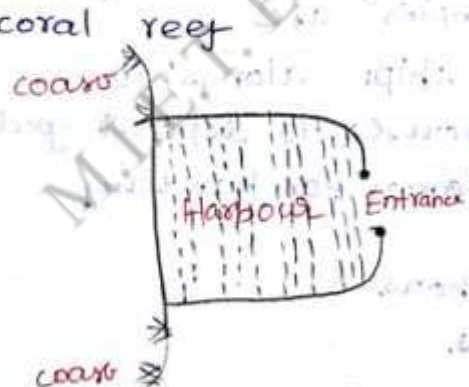 coral reef
coast
Harbour Entrance
coast
M.I.E.T.E